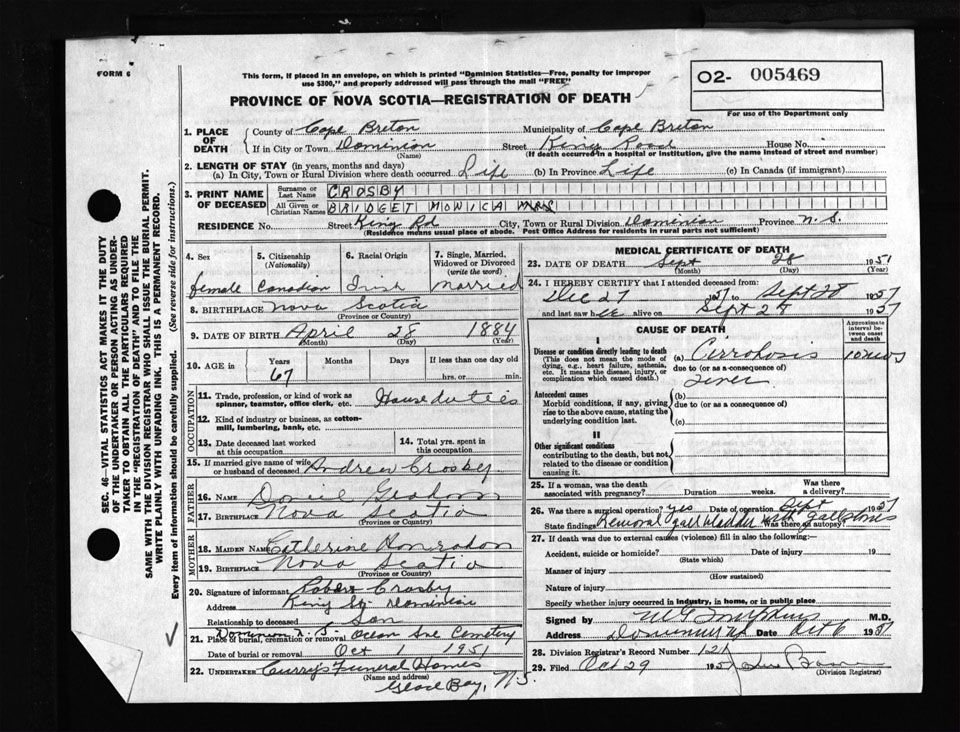 FORM 6
This form, if placed in an envelope, on which is printed "Dominion Statistics—Free, penalty for improper
use $300," and properly addressed will pass through the mail "FREE"
02- 005469
For use of the Department only
PROVINCE OF NOVA SCOTIA—REGISTRATION OF DEATH
SEC. 46—VITAL STATISTICS ACT MAKES IT THE DUTY
OF THE UNDERTAKER OR PERSON ACTING AS UNDER-
TAKER TO OBTAIN ALL THE PARTICULARS REQUIRED
IN THE "REGISTRATION OF DEATH" AND TO FILE THE
SAME WITH THE DIVISION REGISTRAR WHO SHALL ISSUE THE BURIAL PERMIT.
WRITE PLAINLY WITH UNFADING INK. THIS IS A PERMANENT RECORD.
Every item of information should be carefully supplied. (See reverse side for instructions.)
1. PLACE OF DEATH County of Cape Breton Municipality of Cape Breton
If in City or Town Dominion Street King Road House No.
(Name) (If death occurred in a hospital or institution, give the name instead of street and number)
2. LENGTH OF STAY (in years, months and days)
(a) In City, Town or Rural Division where death occurred Life (b) In Province Life (c) In Canada (if immigrant)
3. PRINT NAME OF DECEASED Surname or Last Name CROSBY
All Given or Christian Names BRIDGET MONICA MRS
RESIDENCE No. Street King Rd City, Town or Rural Division Dominion Province N.S.
(Residence means usual place of abode. Post Office Address for residents in rural parts not sufficient)
4. Sex 5. Citizenship (Nationality) 6. Racial Origin 7. Single, Married, Widowed or Divorced (write the word)
female Canadian Irish Married
8. BIRTHPLACE Nova Scotia
(Province or Country)
9. DATE OF BIRTH April 28 1884
(Month) (Day) (Year)
10. AGE in Years Months Days If less than one day old
67 hrs. or min.
OCCUPATION
11. Trade, profession, or kind of work as spinner, teamster, office clerk, etc. House duties
12. Kind of industry or business, as cotton-mill, lumbering, bank, etc.
13. Date deceased last worked at this occupation 14. Total yrs. spent in this occupation
15. If married give name of wife or husband of deceased Andrew Crosby
FATHER
16. NAME
17. BIRTHPLACE Nova Scotia
(Province or Country)
MOTHER
18. MAIDEN NAME Catherine
19. BIRTHPLACE Nova Scotia
(Province or Country)
20. Signature of informant Robert Crosby
Address King St. Dominion
Relationship to deceased Son
Dominion N.S.
21. Place of burial, cremation or removal Ocean Ave Cemetery
Date of burial or removal Oct 1 1951
22. UNDERTAKER Curry's Funeral Homes
(Name and address)
Glace Bay, N.S.
MEDICAL CERTIFICATE OF DEATH
23. DATE OF DEATH Sept 28 1951
(Month) (Day) (Year)
24. I HEREBY CERTIFY that I attended deceased from:
Dec 27 to Sept 28 1951
and last saw alive on Sept 28 1951
CAUSE OF DEATH
Approximate interval between onset and death
I
Disease or condition directly leading to death (a) Cirrohosis
(This does not mean the mode of dying, e.g., heart failure, asthenia, etc. It means the disease, injury, or complication which caused death.)
due to (or as a consequence of)
Liver
Antecedent causes (b)
Morbid conditions, if any, giving rise to the above cause, stating the underlying condition last.
due to (or as a consequence of)
(c)
II
Other significant conditions
contributing to the death, but not related to the disease or condition causing it.
25. If a woman, was the death associated with pregnancy? Duration weeks. Was there a delivery?
26. Was there a surgical operation? yes Date of operation 1951
State findings Removal gall bladder with gallstones Was there an autopsy?
27. If death was due to external causes (violence) fill in also the following:
Accident, suicide or homicide? Date of injury 19
(State which)
Manner of injury
(How sustained)
Nature of injury
Specify whether injury occurred in industry, in home, or in public place
Signed by M.D.
Address Dominion NS Date Oct 6 1951
28. Division Registrar's Record Number 121
29. Filed Oct 29 1951
(Division Registrar)